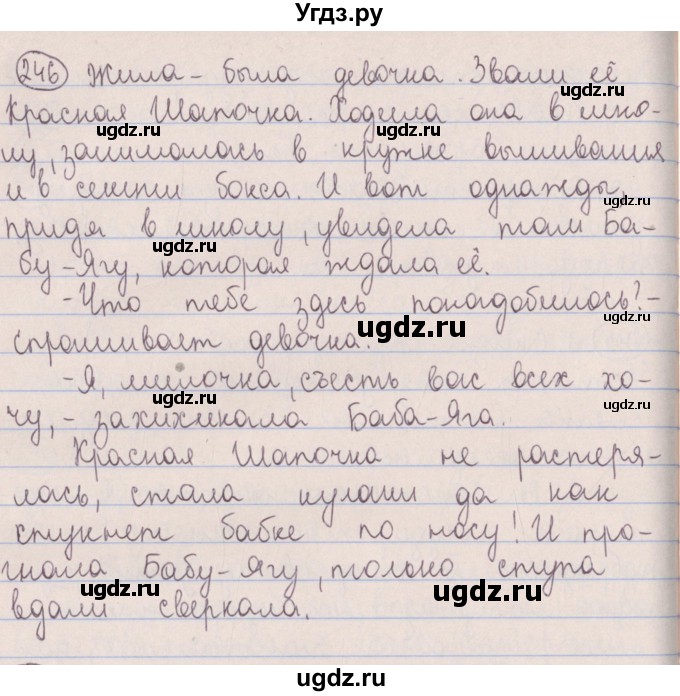 Угдз.ру
246 Жила-была девочка. Звали её
Красная Шапочка. Ходила она в шко-
лу, занималась в кружке вышивания
и в секции бокса. И вот однажды,
придя в школу, увидела там Ба-
бу-Ягу, которая ждала её.
-Что тебе здесь понадобилось?-
спрашивает девочка.
-Я, милочка, съесть вас всех хо-
чу,- захихикала Баба-Яга.
Красная Шапочка не растеря-
лась, сжала кулаки да как
стукнет бабке по носу! И про-
гнала Бабу-Ягу, только ступа
вдали сверкала.
ugdz.ru
ugdz.ru
ugdz.ru
ugdz.ru
ugdz.ru
ugdz.ru
ugdz.ru
ugdz.ru
ugdz.ru
ugdz.ru
ugdz.ru
ugdz.ru
ugdz.ru